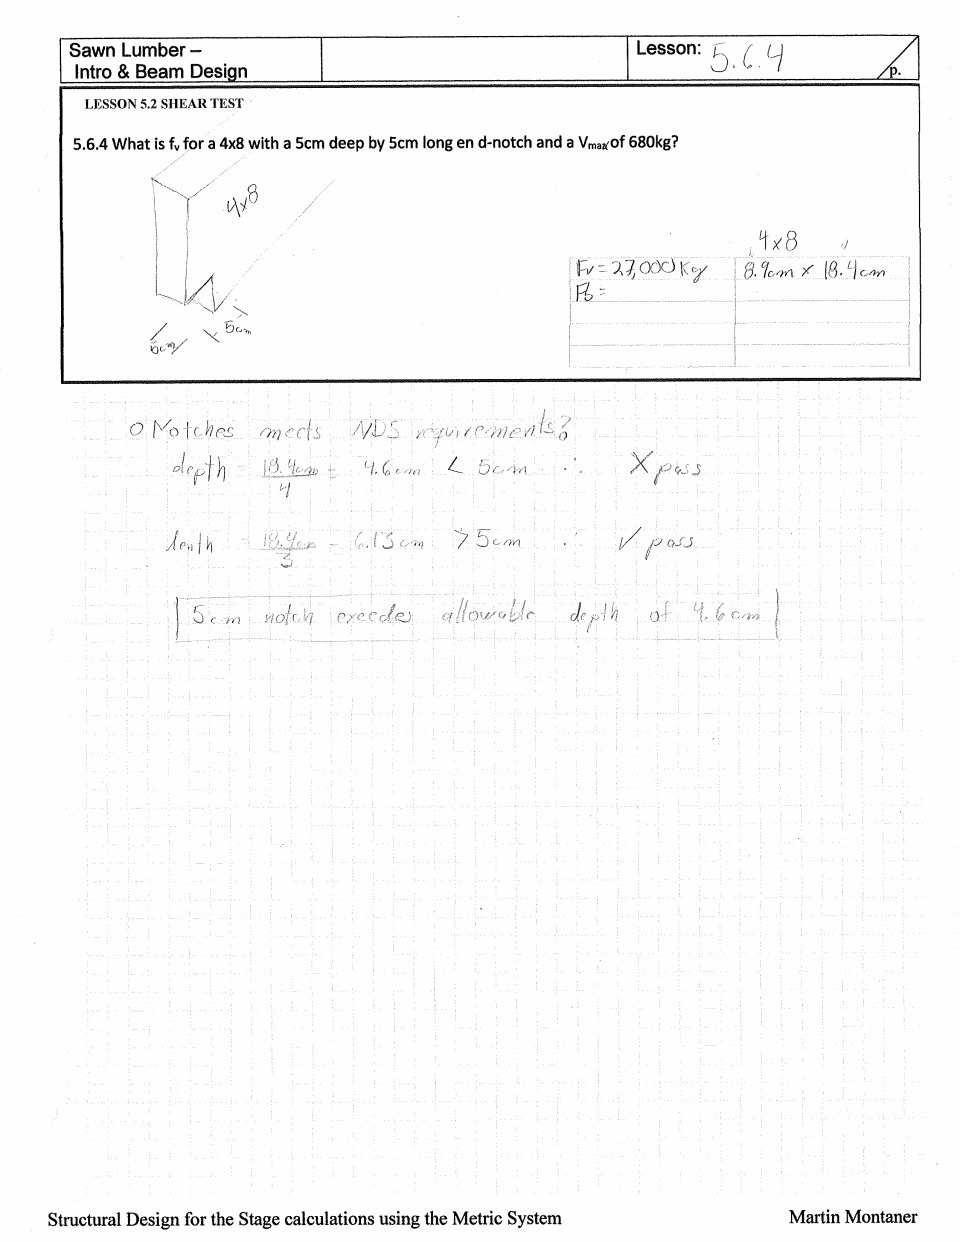 Sawn Lumber –
Intro & Beam Design
Lesson: 5.6.4
p.
LESSON 5.2 SHEAR TEST
5.6.4 What is fv for a 4x8 with a 5cm deep by 5cm long en d-notch and a Vmax of 680kg?
4x8
4x8
Fv = 27,000 Kg 8.9cm x 18.4cm
Fb =
5cm
5cm
O Notches meets NDS requirements?
depth = 18.4cm/4 = 4.6cm < 5cm ∴ X pass
lenth = 18.4cm/3 = 6.13cm > 5cm ∴ ✓ pass
5cm notch execdes allowable depth of 4.6cm
Structural Design for the Stage calculations using the Metric System
Martin Montaner